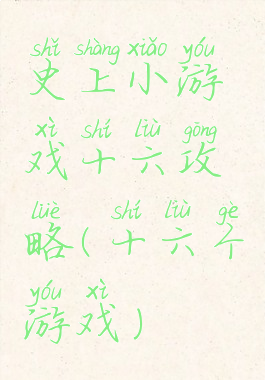 shǐ shàng xiǎo yóu
史上小游
xì shí liù gōng
戏十六攻
lüè shí liù gè
略(十六个
yóu xì
游戏)